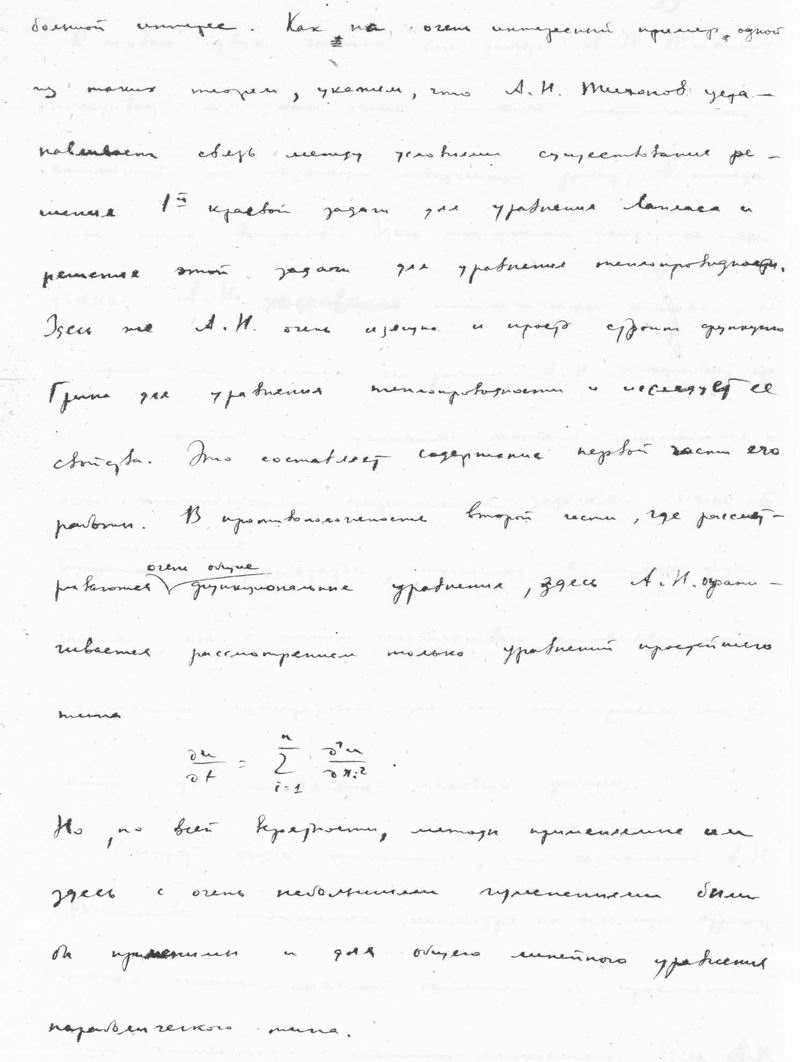 большой интерес. Как на очень интересный пример одной
из таких теорем, укажем, что А.Н. Тихонов уста-
навливает связь между условиями существования ре-
шения 1ой краевой задачи для уравнения Лапласа и
решения этой задачи для уравнения теплопроводности.
Здесь же А.Н. очень изящно и просто строит функцию
Грина для уравнения теплопроводности и исследует ее
свойства. Это составляет содержание первой части его
работы. В противоположность второй части, где рассмат-
очень общие
риваются функциональные уравнения, здесь А.Н. ограни-
чивается рассмотрением только уравнений простейшего
типа
∂u/∂t = ∑_{i=1}^{n} ∂²u/∂x_i².
Но, по всей вероятности, методы применяемые им
здесь с очень небольшими изменениями были
бы применимы и для общего линейного уравнения
параболического типа.